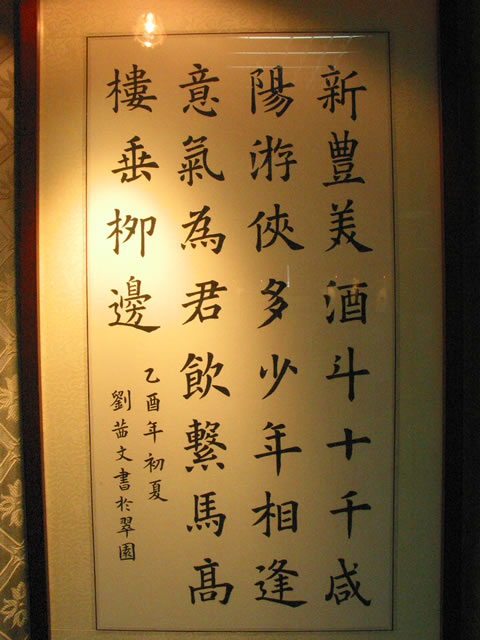 新豊美酒斗十千咸
陽游俠多少年相逢
意氣為君飲繫馬髙
樓垂柳邊
乙酉年初夏
劉茜文書於翠園